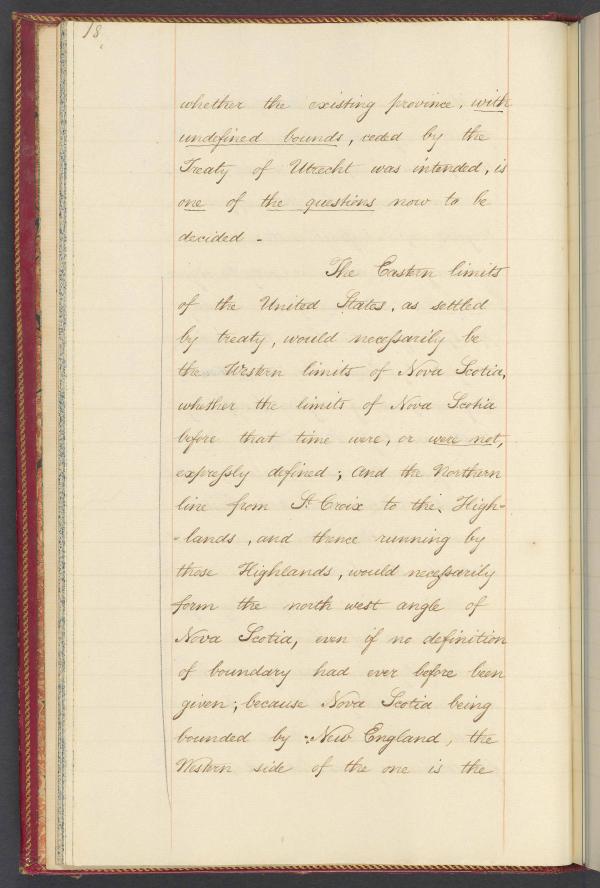 18.
whether the existing province, with
undefined bounds, ceded by the
Treaty of Utrecht was intended, is
one of the questions now to be
decided -
The Eastern limits
of the United States, as settled
by treaty, would necessarily be
the Western limits of Nova Scotia,
whether the limits of Nova Scotia
before that time were, or were not,
expressly defined; and the Northern
line from St Croix to the High-
-lands, and thence running by
those Highlands, would necessarily
form the north west angle of
Nova Scotia, even if no definition
of boundary had ever before been
given; because Nova Scotia being
bounded by New England, the
Western side of the one is the